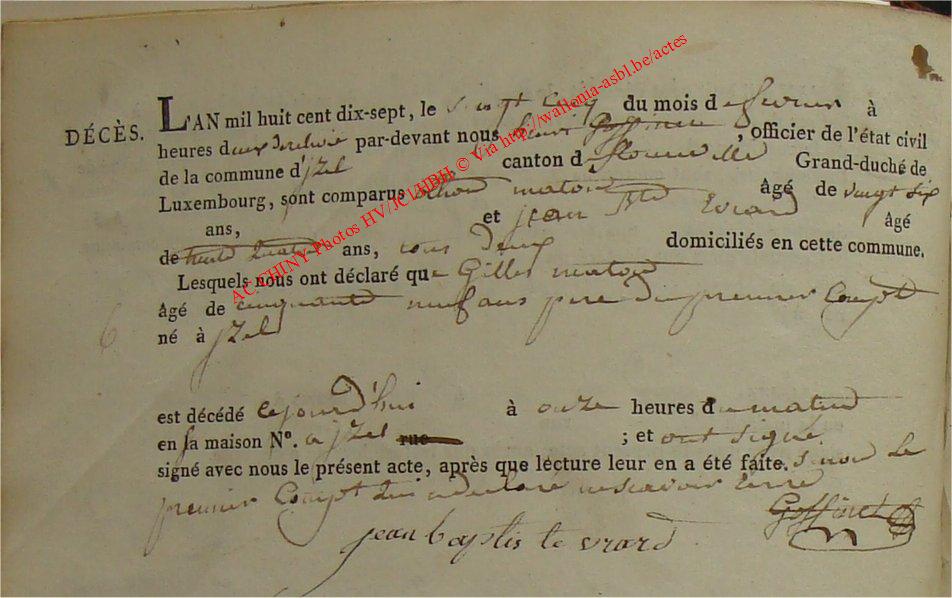 DÉCÈS.
L'AN mil huit cent dix-sept, le vingt cinq du mois de fevrier à
heures d par-devant nous Goffinet, officier de l'état civil
de la commune d'jzel canton de florenville Grand-duché de
Luxembourg, sont comparus maton âgé de vingt six
ans, et jean Bte Evrard âgé
de trente quatre ans, tous deux domiciliés en cette commune.
Lesquels nous ont déclaré que Gilles maton
âgé de cinquante neuf ans pere du premier Compt
né à jzel
6
est décédé cejourd'hui à onze heures du matin
en sa maison N°. a jzel rue ; et ont signé
signé avec nous le présent acte, après que lecture leur en a été faite. sinon le
premier Compt qui a declaré
Goffinet
jean baptiste evrard
AC CHINY Photos HV/JCl/HBH © Via http://wallonia-asbl.be/actes